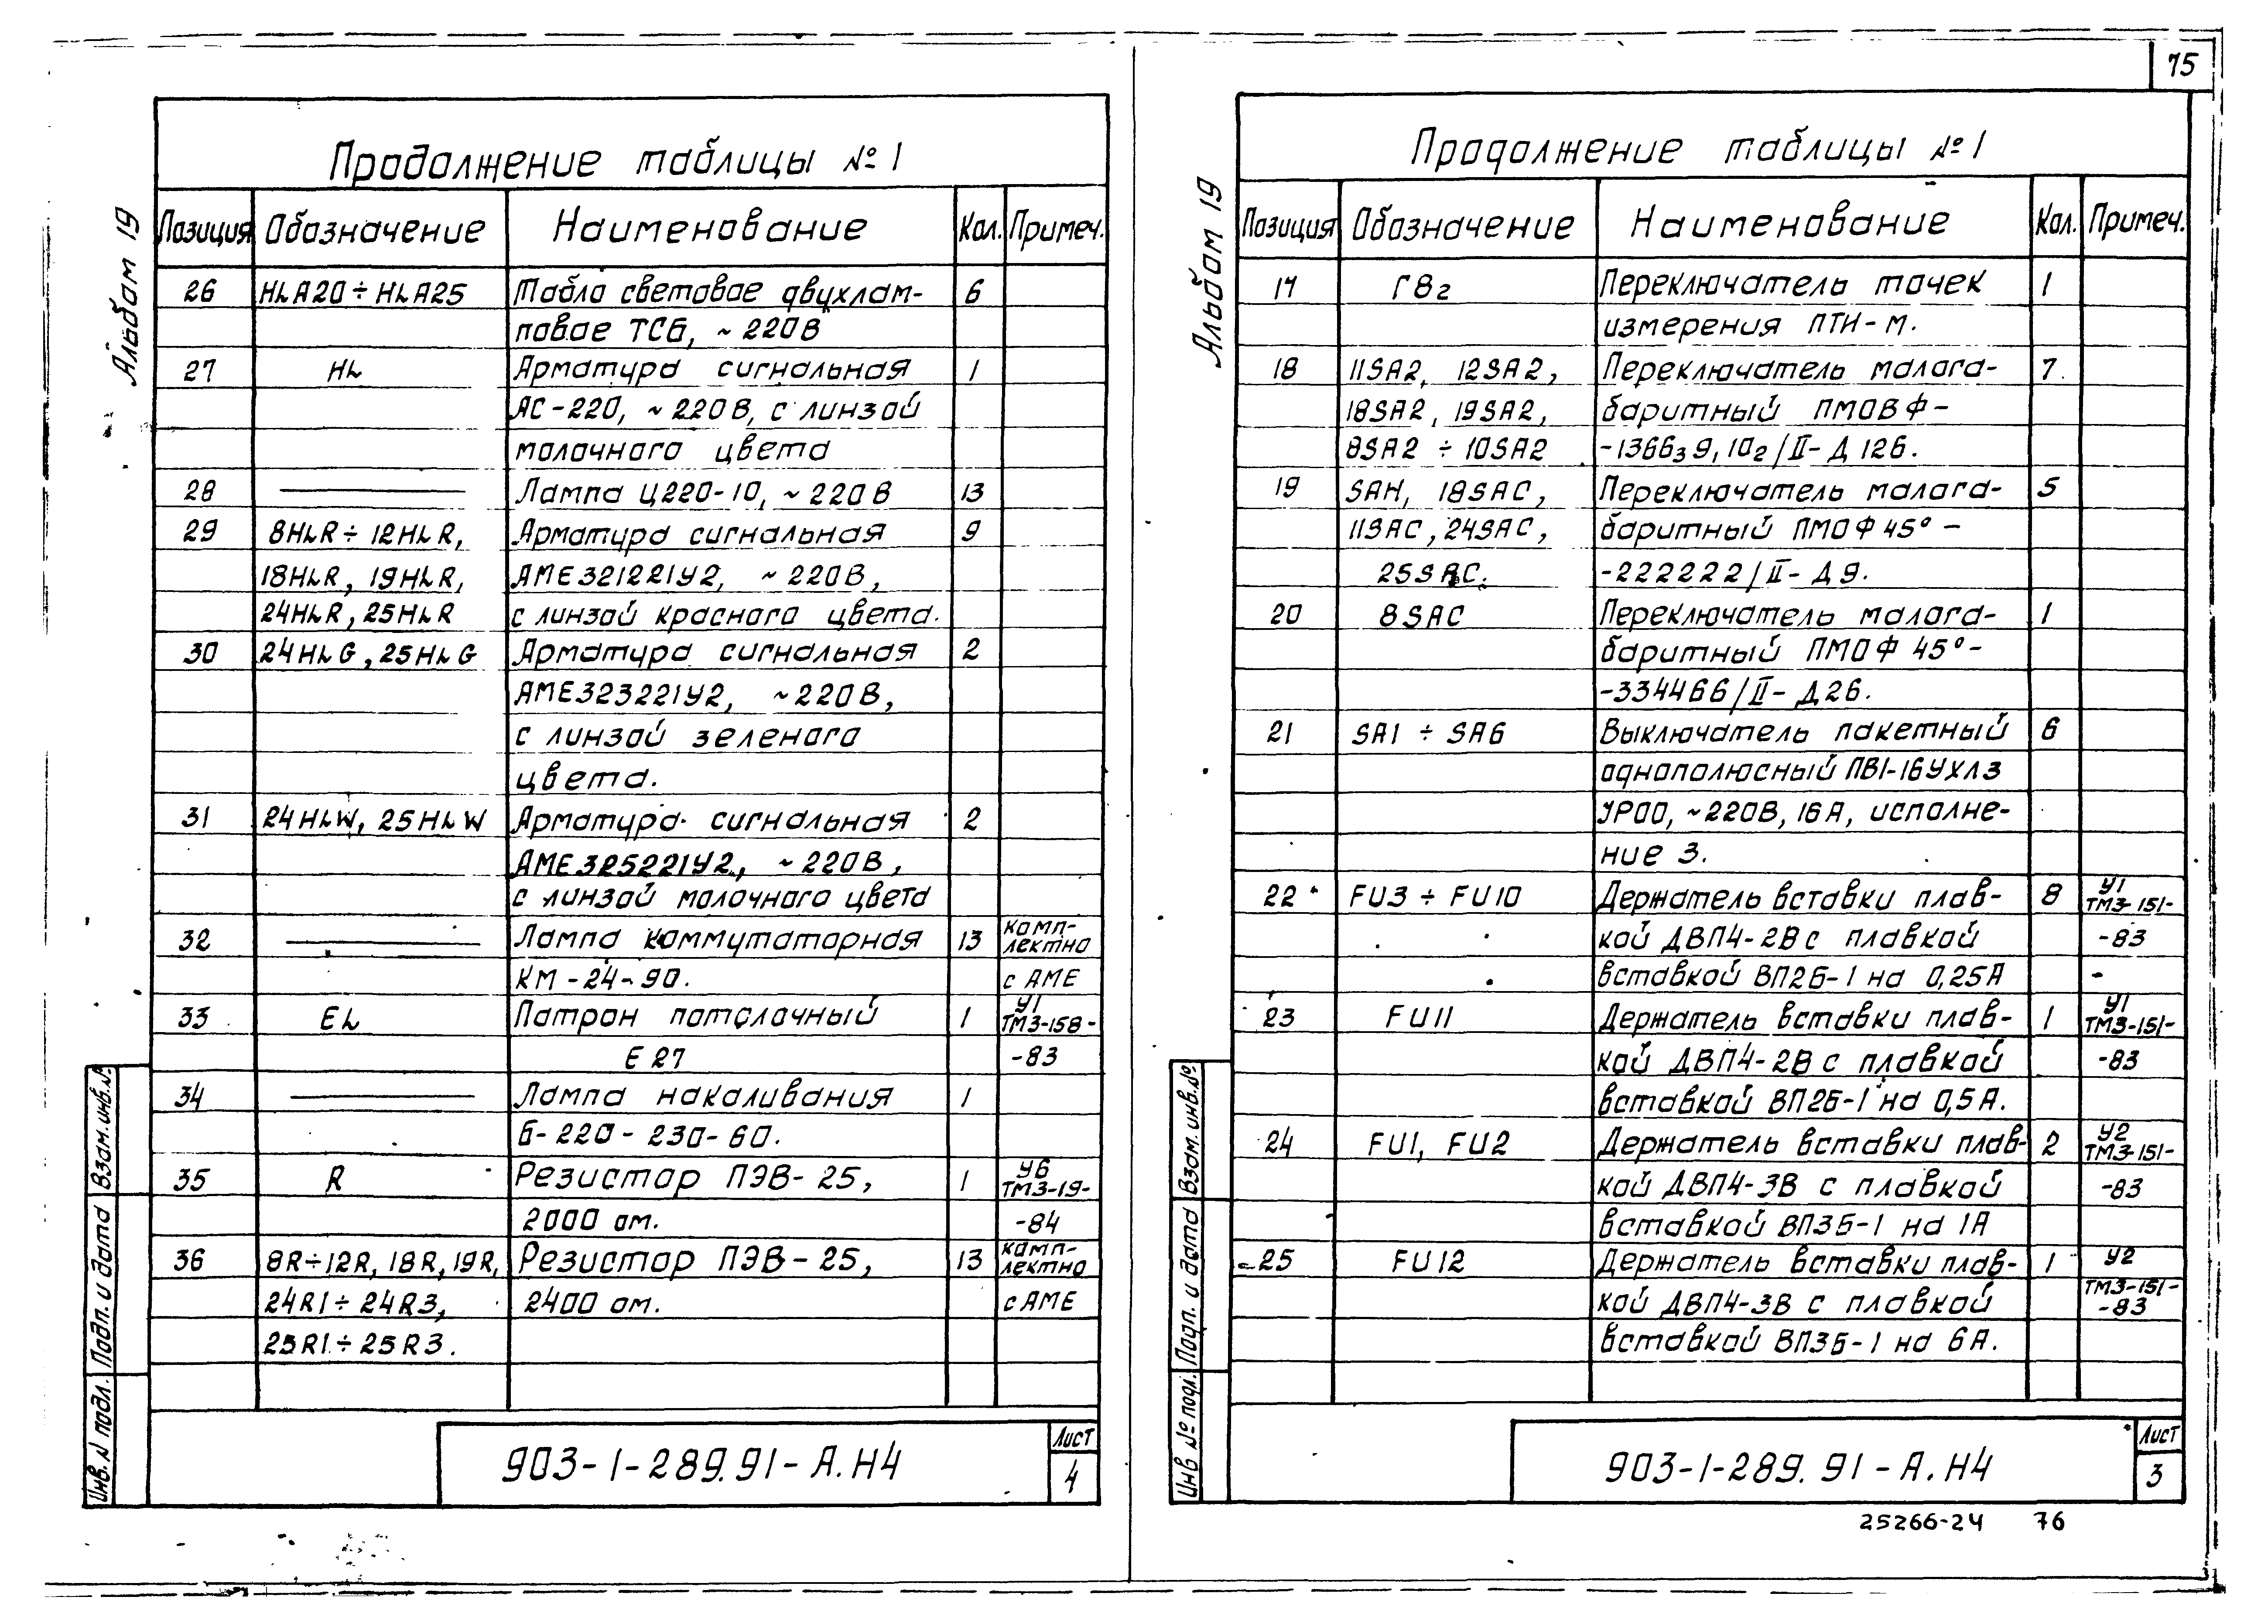 75
Альбом 19
Продолжение таблицы № 1
Позиция Обозначение Наименование Кол. Примеч.
26 HLA20 ÷ HLA25 Табло световое двухлам- 6
повое ТСб, ~ 220В
27 HL Арматура сигнальная 1
АС-220, ~220В, с линзой
молочного цвета
28 Лампа Ц220-10, ~220В 13
29 8HLR ÷ 12HLR, Арматура сигнальная 9
18HLR, 19HLR, АМЕ321221У2, ~220В,
24HLR, 25HLR с линзой красного цвета.
30 24HLG, 25HLG Арматура сигнальная 2
АМЕ323221У2, ~220В,
с линзой зеленого
цвета.
31 24HLW, 25HLW Арматура сигнальная 2
АМЕ325221У2, ~220В,
с линзой молочного цвета
32 Лампа коммутаторная 13 комп-
лектно
КМ-24-90. с АМЕ
33 EL Патрон потолочный 1 У1
ТМ3-158-
Е27 -83
34 Лампа накаливания 1
Б-220-230-60.
35 R Резистор ПЭВ-25, 1 У6
ТМ3-19-
2000 ом. -84
36 8R÷12R, 18R, 19R, Резистор ПЭВ-25, 13 комп-
лектно
24R1÷24R3, 2400 ом. с АМЕ
25R1÷25R3.
Инв. N подл. Подп. и дата Взам. инв. №
903-1-289.91-А.Н4
Лист
4
Альбом 19
Продолжение таблицы № 1
Позиция Обозначение Наименование Кол. Примеч.
17 Г8г Переключатель точек 1
измерения ПТИ-М.
18 11SA2, 12SA2, Переключатель малога- 7
18SA2, 19SA2, баритный ПМОВФ-
8SA2 ÷ 10SA2 -1366₃9,10₂/II-Д126.
19 SAH, 18SAC, Переключатель малога- 5
11SAC, 24SAC, баритный ПМОФ45°-
25SAC. -222222/II-Д9.
20 8SAC Переключатель малога- 1
баритный ПМОФ 45°-
-334466/II-Д26.
21 SA1 ÷ SA6 Выключатель пакетный 6
однополюсный ПВ1-16УХЛ3
УР00, ~220В, 16А, исполне-
ние 3.
22 FU3 ÷ FU10 Держатель вставки плав- 8 У1
ТМ3-151-
кой ДВП4-2В с плавкой -83
вставкой ВП2Б-1 на 0,25А -
23 FU11 Держатель вставки плав- 1 У1
ТМ3-151-
кой ДВП4-2В с плавкой -83
вставкой ВП2Б-1 на 0,5А.
24 FU1, FU2 Держатель вставки плав- 2 У2
ТМ3-151-
кой ДВП4-3В с плавкой -83
вставкой ВП3Б-1 на 1А
25 FU12 Держатель вставки плав- 1 У2
кой ДВП4-3В с плавкой ТМ3-151-
-83
вставкой ВП3Б-1 на 6А.
Инв № подл. Подп. и дата Взам. инв. №
903-1-289.91-А.Н4
Лист
3
25266-24 76